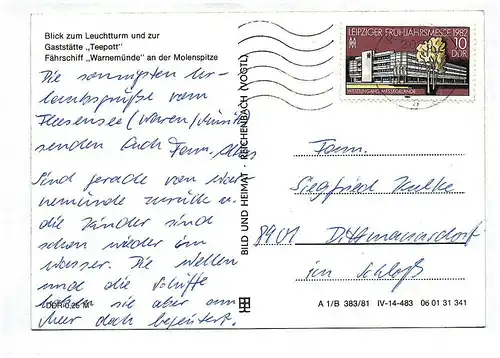 Blick zum Leuchtturm und zur
Gaststätte „Teepott"
Fährschiff „Warnemünde" an der Molenspitze
Die sonnigsten Ur-
laubsgrüße vom
Fleesensee (Waren/Müritz)
senden Euch Fam.
Sind gerade von War-
nemünde zurück u.
die Kinder sind
schon wieder im
Wasser. Die Wellen
und die Schiffe
haben sie aber am
Meer doch begeistert.
DDR 0,25 M
BILD UND HEIMAT · REICHENBACH (VOGTL)
LEIPZIGER FRÜHJAHRSMESSE 1982
10
DDR
WESTEINGANG MESSEGELÄNDE
Fam.
Siegfried
8901 Dittmannsdorf
im Schloß
A 1/B 383/81 IV-14-483 06 01 31 341